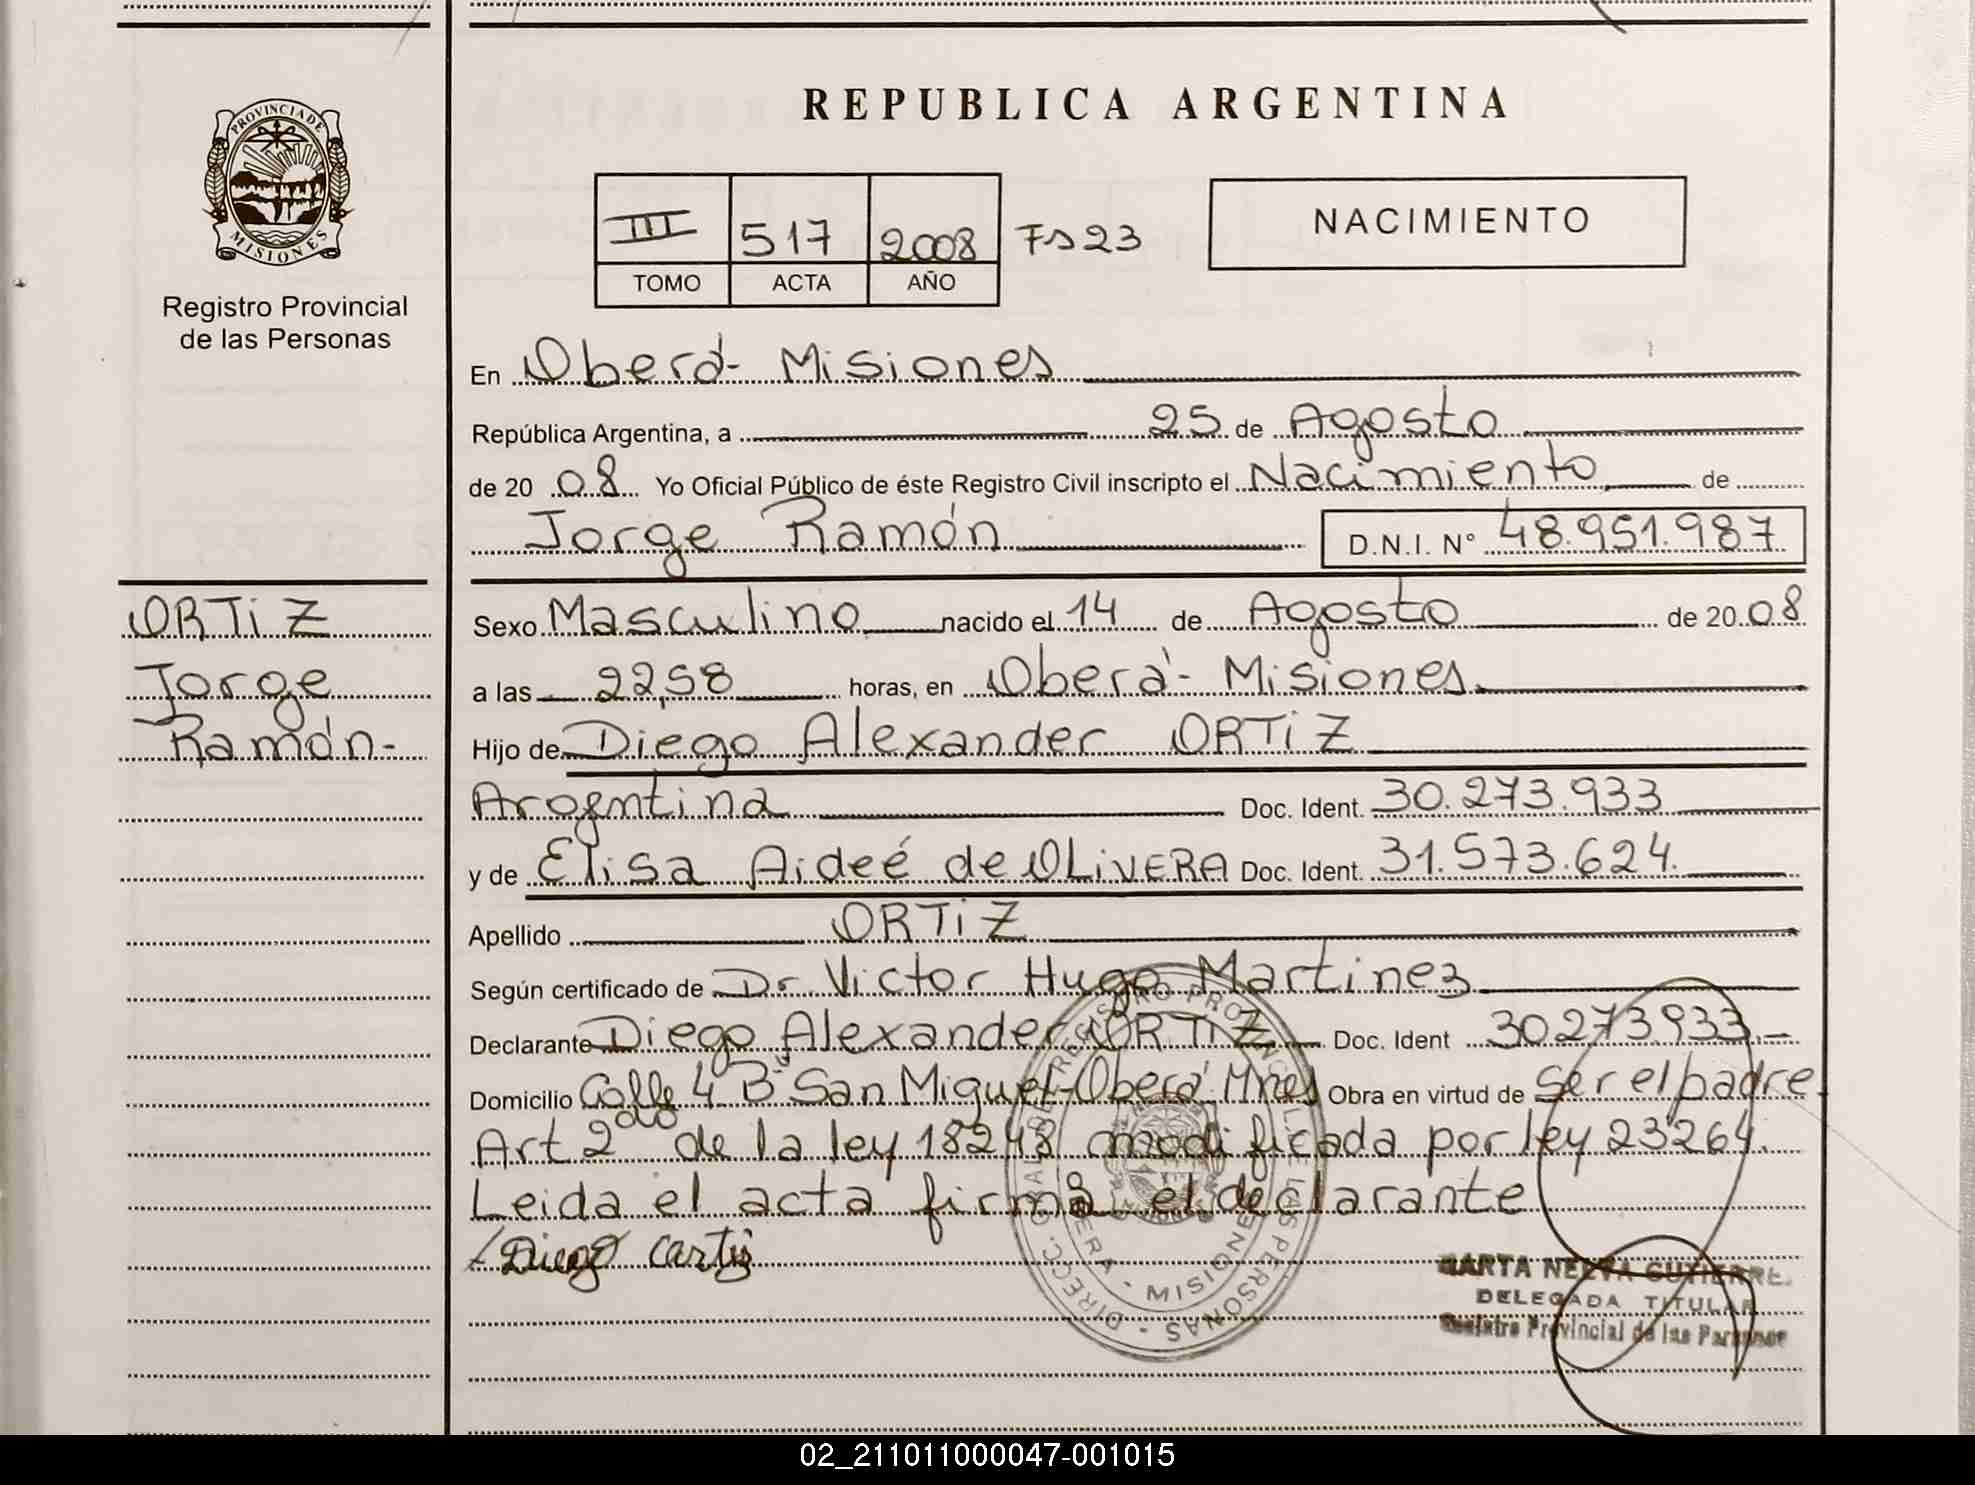 REPUBLICA ARGENTINA
PROVINCIA DE
MISIONES
Registro Provincial
de las Personas
III 517 2008 Fs 23
TOMO ACTA AÑO
NACIMIENTO
En Oberá - Misiones
República Argentina, a 25 de Agosto
de 20 08 Yo Oficial Público de éste Registro Civil inscripto el Nacimiento de
Jorge Ramón D.N.I. N° 48.951.987
ORTiZ
Jorge
Ramón-
Sexo Masculino nacido el 14 de Agosto de 20 08
a las 22,58 horas, en Oberá - Misiones.
Hijo de Diego Alexander ORTiZ
Argentina Doc. Ident. 30.273.933
y de Elisa Aideé de OLiVERA Doc. Ident. 31.573.624.
Apellido ORTiZ
Según certificado de Dr Victor Hugo Martinez
Declarante Diego Alexander ORTiZ Doc. Ident 30273933.-
Domicilio Calle 4 B° San Miguel-Oberá-Mnes Obra en virtud de Ser el padre.
Art 2do de la ley 18248 modificada por ley 23264.
Leida el acta firma el declarante
Diego Ortiz
DIRECC. GRAL. DE REGISTRO PROVINCIAL DE LAS PERSONAS - MISIONES
DELEGADA TITULAR
Registro Provincial de las Personas
02_211011000047-001015